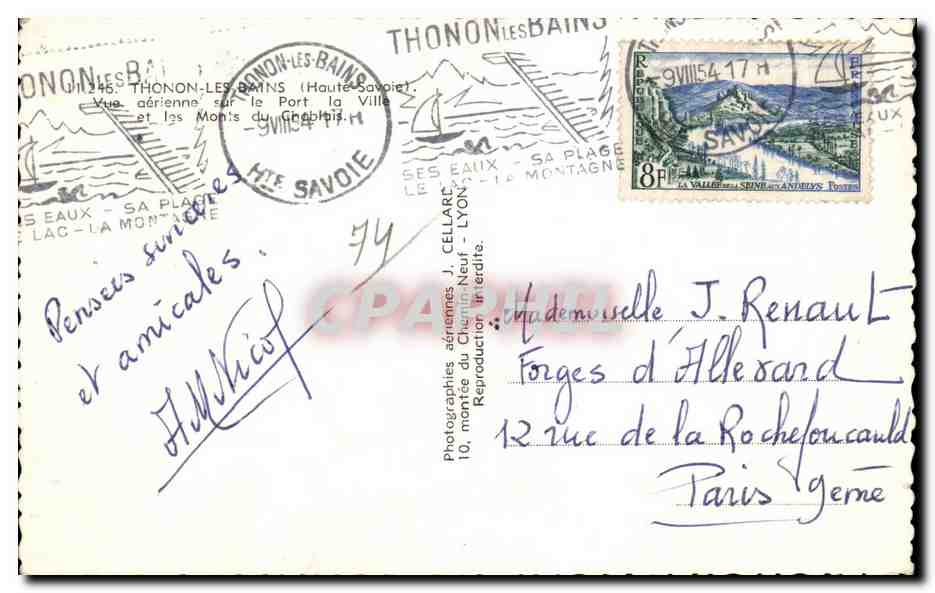 THONON LES BAINS
SES EAUX - SA PLAGE
LE LAC - LA MONTAGNE
THONON-LES-BAINS
-9VIII54-17H
Hte SAVOIE
THONON LES BAINS
SES EAUX - SA PLAGE
LE LAC - LA MONTAGNE
9VIII54-17H
SAVO
8F
LA VALLÉE DE LA SEINE AUX ANDELYS POSTES
245. THONON-LES-BAINS (Haute-Savoie).
Vue aérienne sur le Port la Ville
et les Monts du Chablais.
Pensées sincères
et amicales.
74
Photographies aériennes J. CELLARD
10, montée du Chemin-Neuf - LYON
Reproduction interdite.
CPAPHIL
Mademoiselle J. Renault
Forges d'Allevard
12 rue de la Rochefoucauld
Paris 9ème